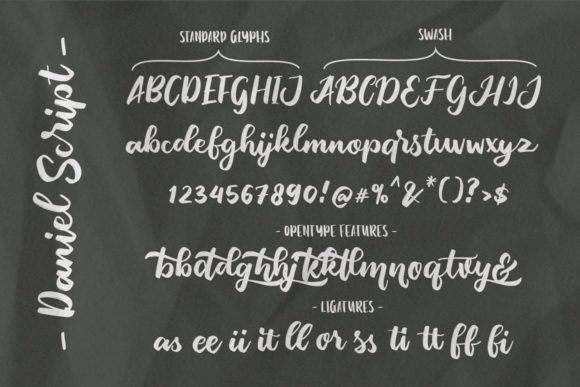 - Daniel Script -
STANDARD GLYPHS SWASH
ABCDEFGHIJ ABCDEFGHIJ
abcdefghijklmnopqrstuvwxyz
1234567890!@#%^&*()?>$
- OPENTYPE FEATURES -
- LIGATURES -
as ee ii it ll or ss ti tt ff fi